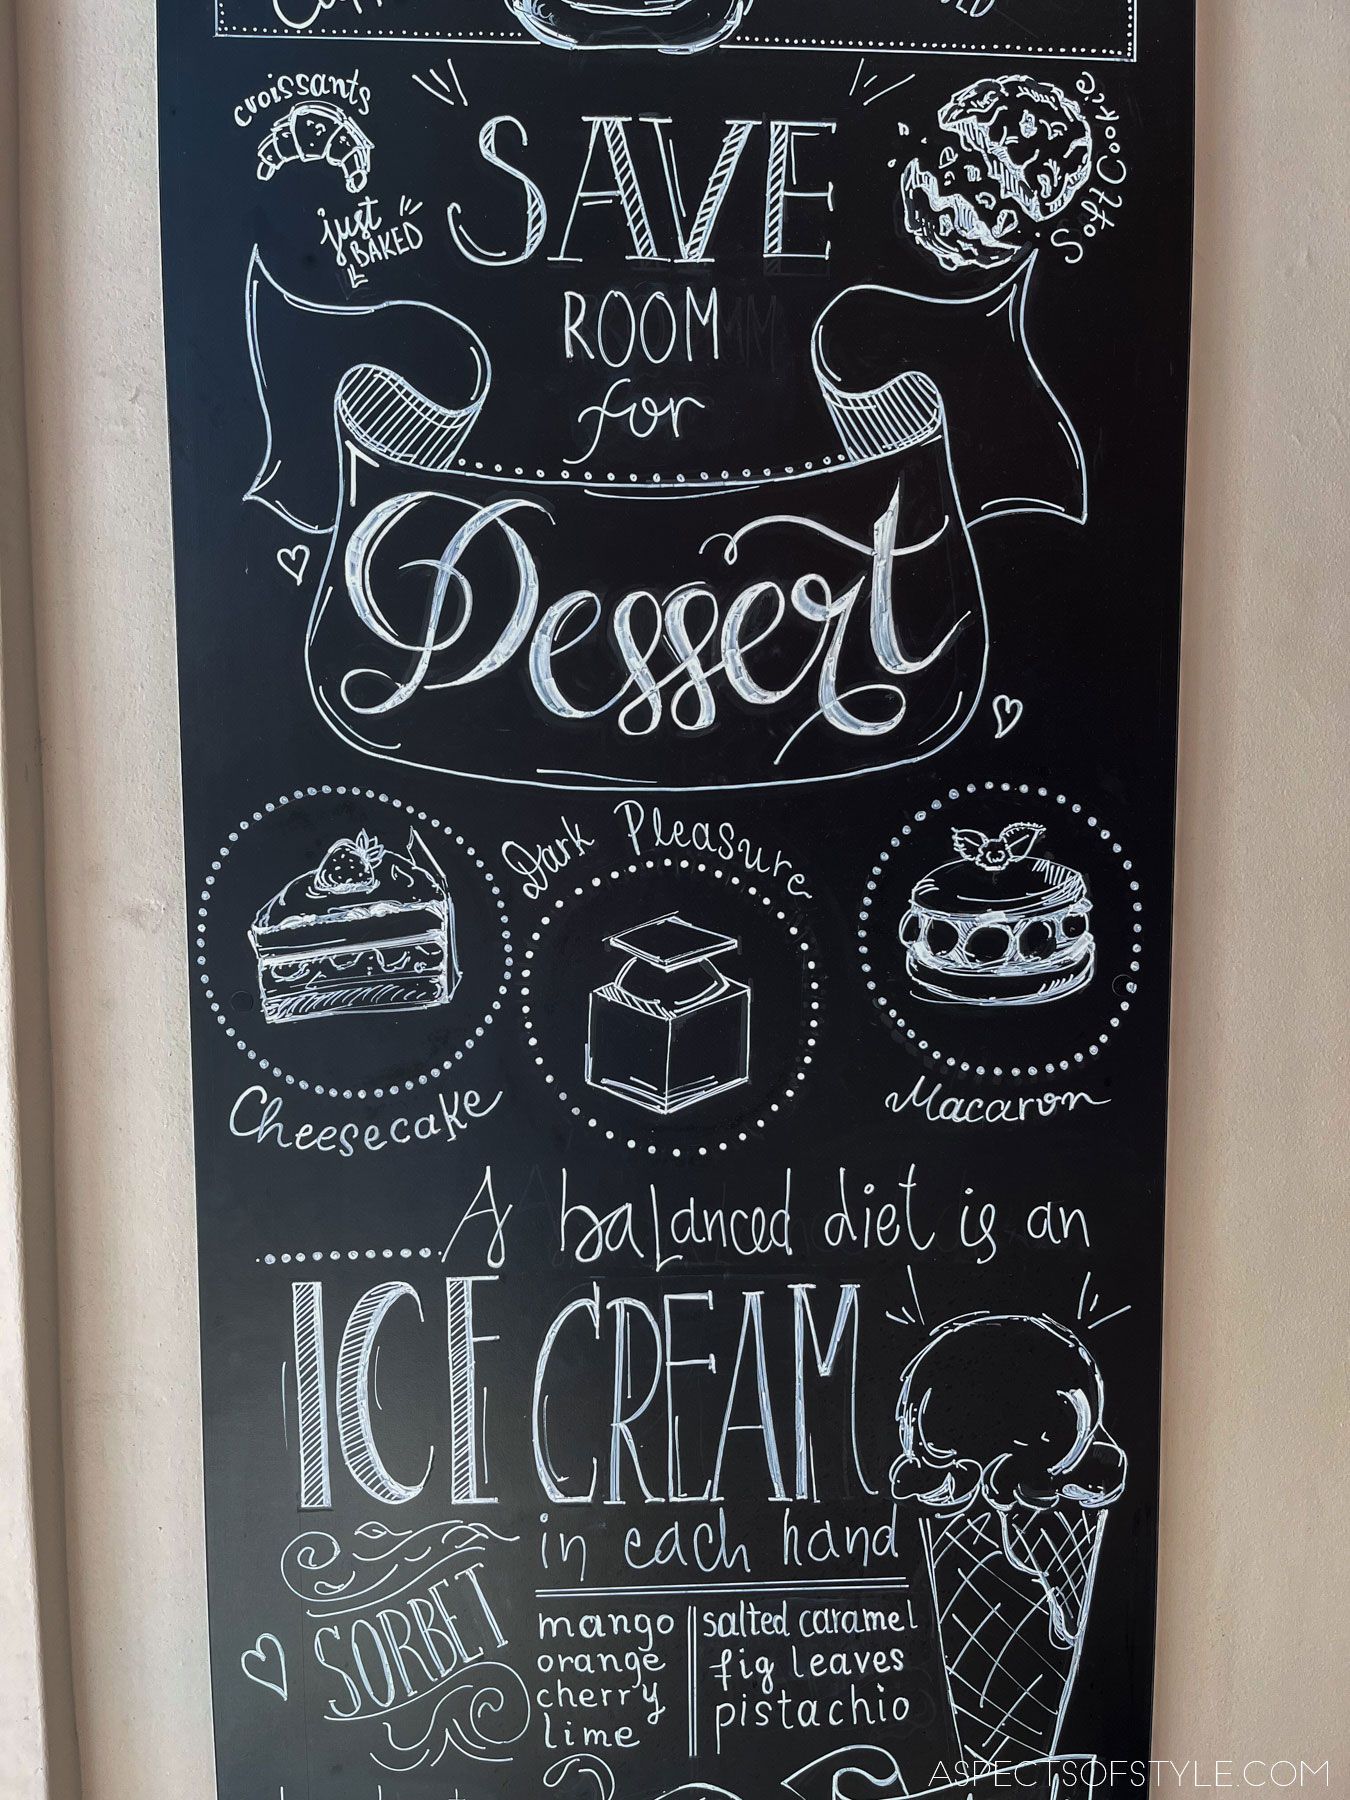 croissants
just
BAKED
Soft Cookie
SAVE
ROOM
for
Dessert
Dark Pleasure
Cheesecake
Macaron
A balanced diet is an
ICE CREAM
in each hand
SORBET
mango
orange
cherry
lime
salted caramel
fig leaves
pistachio
ASPECTSOFSTYLE.COM